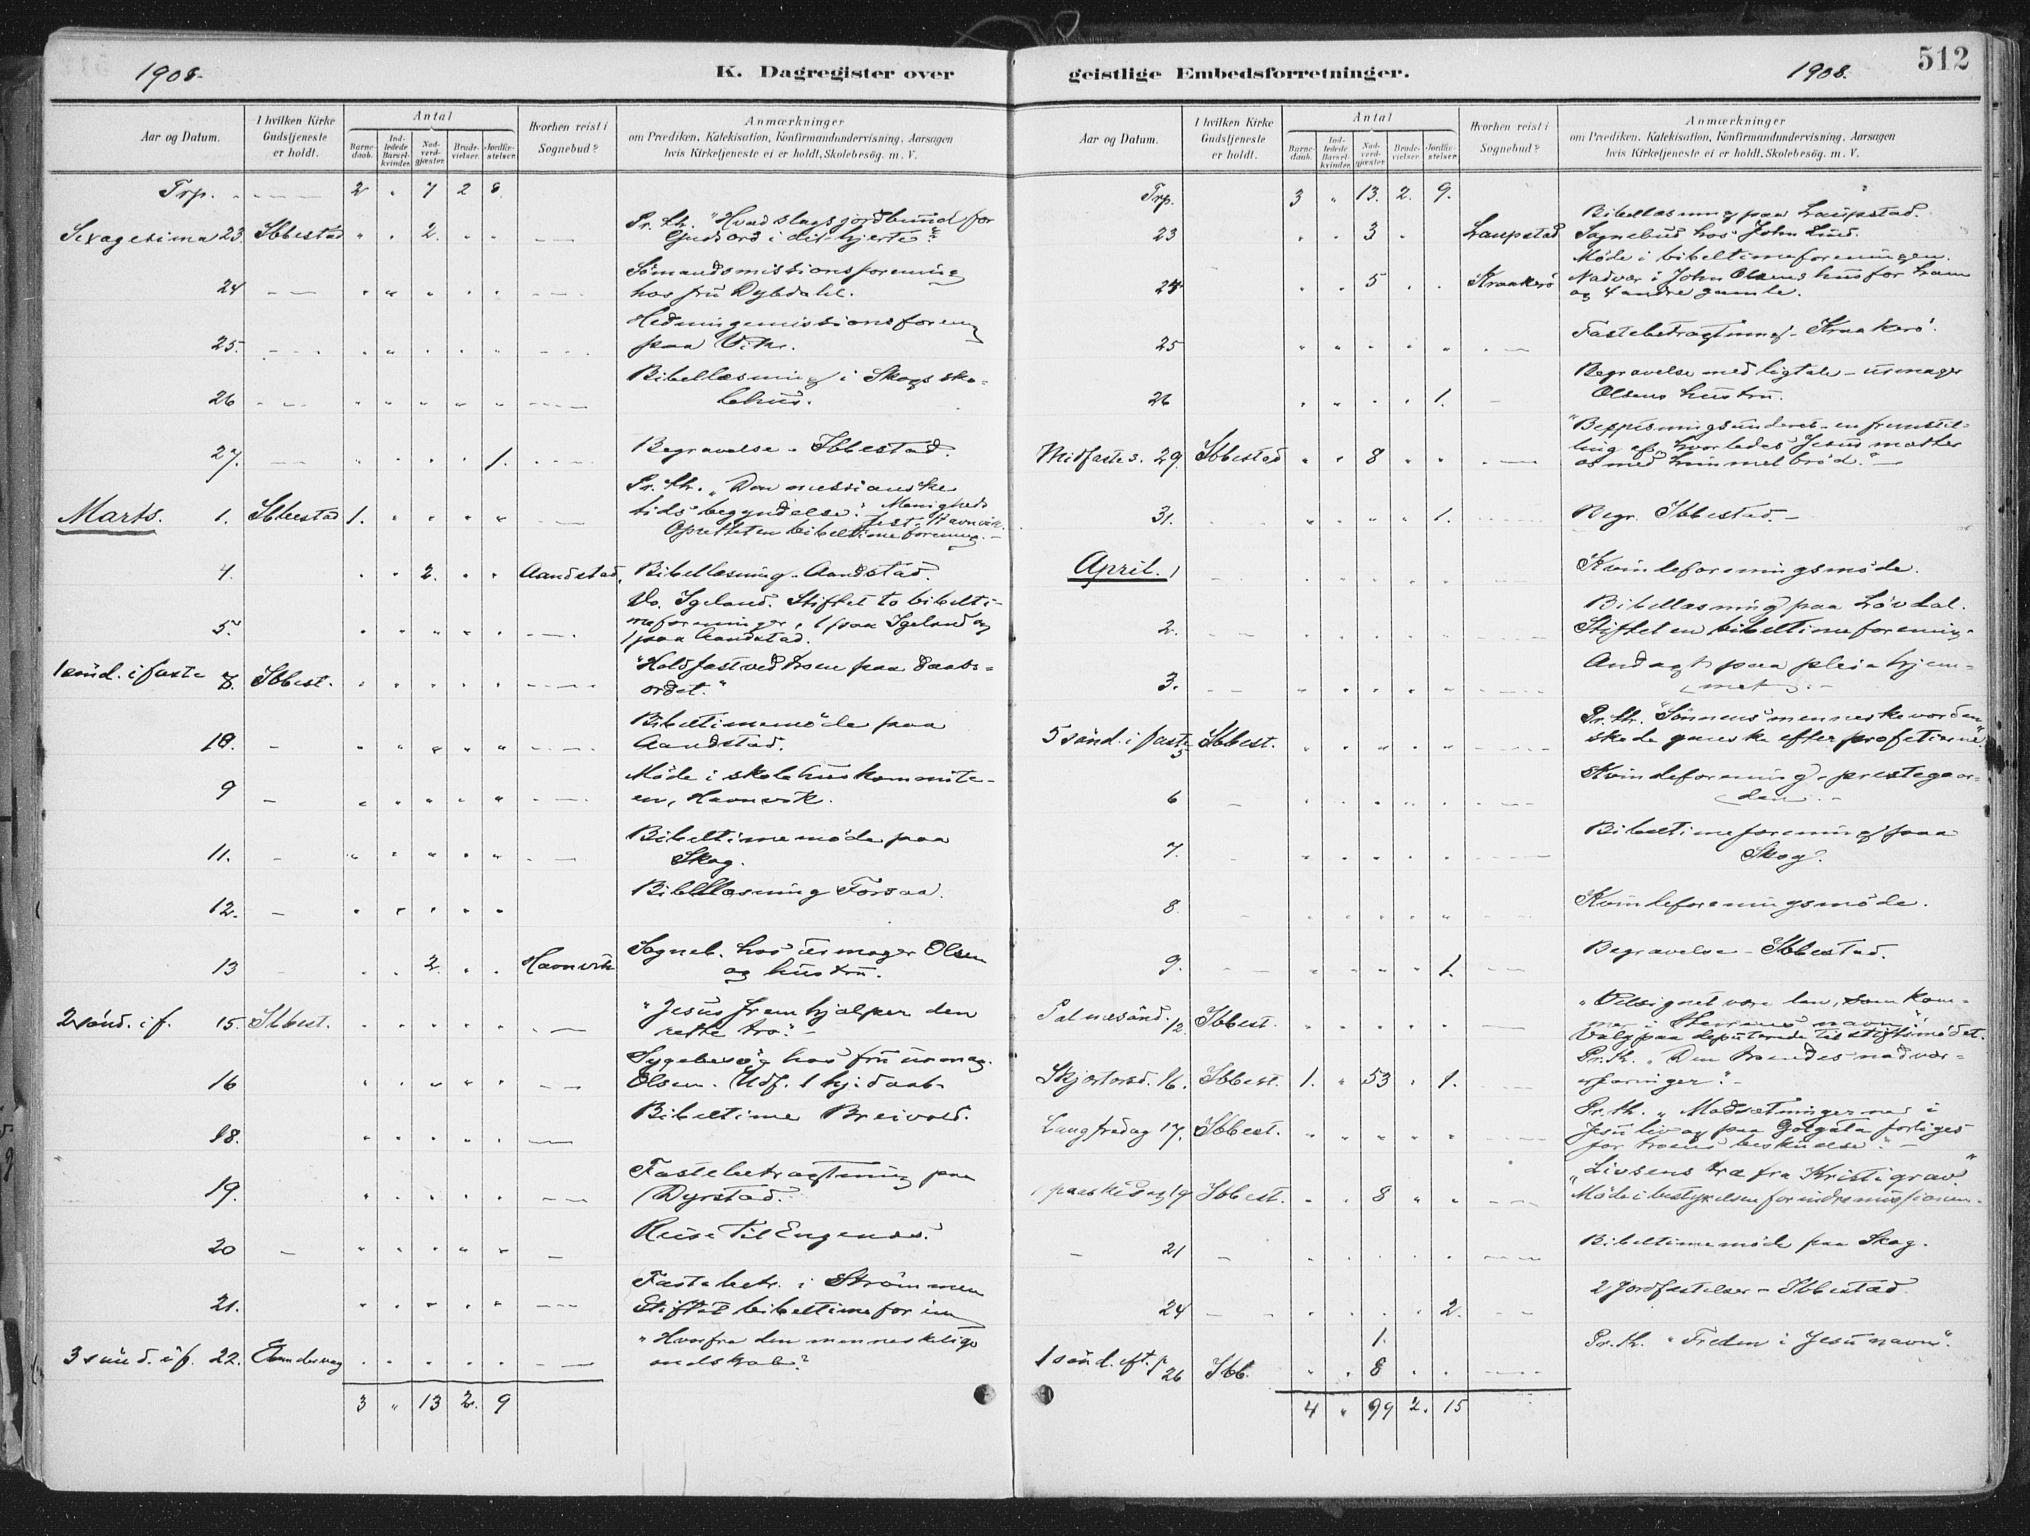 1908.
K. Dagregister over
Aar og Datum.
I hvilken Kirke Gudstjeneste er holdt.
Antal
Barne-daab.
Ind-ledede Barsel-kvinder.
Nad-verd-gjæster.
Brude-vielser.
Jordfæ-stelser.
Hvorhen reist i Sognebud?
Anmærkninger
om Prædiken, Katekisation, Konfirmandundervisning, Aarsagen
hvis Kirketjeneste ei er holdt, Skolebesøg. m. V.
Trp. 2 " 7 2 8
Sexagesima 23. Ibbestad " " 2. Pr. th. "Hvad slags jordbund for
Guds ord i dit hjerte?"
24 Sømandsmissionsforening
hos fru Dybdahl.
25. Hedningemissionsforening
paa Vik.
26 Bibellæsning i Skogs sko-
lehus.
27. 1. Begravelse - Ibbestad.
Marts. 1. Ibbestad 1. Pr. th. "Den messianske
tids begyndelse". Menigheds
fest, Havnvik.
Oprettet en bibeltimeforening.
4. 2. Aandstad. Bibellæsning - Aandstad.
5. Do. Igeland. Stiftet to bibelti-
meforeninger, 1 paa Igeland og
1 paa Aandstad.
1 sønd. i faste 8. Ibbest. "Hold fast ved troen paa daabs-
ordet."
18. Bibeltimemøde paa
Aandstad.
9 Møde i skolehuskommite-
en, Havnvik.
11. Bibeltimemøde paa
Skog.
12. Bibellæsning Forsaa.
13 2. Havnvik Sogneb. hos urmager Olsen
og hustru.
2 sønd. i f. 15. Ibbest. "Jesus fremhjælper den
rette tro." -
16 Sygebesøg hos fru urmag.
Olsen. Udf. 1 hj. daab.
18. Bibeltime Breivold.
19. Fastebetragtning paa
Dyrstad.
20 Reise til Engenes.
21. Fastebetr. i Strømmen
Stiftet bibeltimeforening
3 sønd. i f. 22. "Hvorfra den menneskelige
ondskab?"
3 " 13 2. 9
geistlige Embedsforretninger.
1908.
512
Aar og Datum.
I hvilken Kirke Gudstjeneste er holdt.
Antal
Barne-daab.
Ind-ledede Barsel-kvinder.
Nad-verd-gjæster.
Brude-vielser.
Jordfæ-stelser.
Hvorhen reist i Sognebud?
Anmærkninger
om Prædiken, Katekisation, Konfirmandundervisning, Aarsagen
hvis Kirketjeneste ei er holdt, Skolebesøg. m. V.
Trp. 3 " 13. 2. 9.
23 3 Laupstad Bibellæsning paa Laupstad.
Sognebud hos John Lind.
24 5 Kraakerø Møde i bibeltimeforeningen.
Nadver i John Olsens hus for ham
og 4 andre gamle.
25 Fastebetragtning - Kraakerø.
26 1. Begravelse med ligtale - urmager
Olsens hustru.
Midfastes. 29. Ibbestad 8 "Bespisningsunderet - en fremstil-
ling af hvorledes Jesus mætter
os med himmelbrød." -
31. 1. Begr. Ibbestad. -
April. 1 Kvindeforeningsmøde.
2. Bibellæsning paa Løvdal.
Stiftet en bibeltimeforening.
3. Andagt paa pleiehjem-
met. -
5 sønd. i faste 5 Ibbest. Pr. th. "Sønnens menneskevorden
skede ganske efter profetierne".
6 Kvindeforening, prestegaar-
den. -
7. Bibeltimeforening paa
Skog.
8. Kvindeforeningsmøde.
9. 1. Begravelse - Ibbestad.
Palmesønd. 12. Ibbest. "Velsignet være han, som kom-
mer i Herrens navn".
Valg paa deputerede til stiftsmødet.
Skjærtorsd. 16. Ibbest. 1. " 53 " 1. Pr. th. "Den troendes nadver-
erfaringer". -
Langfredag 17. Ibbest. Pr. th. "Modsætningerne i
Jesu liv og paa Golgata forliges
for troens beskuelse". -
1 paaskedag 19 Ibbest. 8 "Livsens træ fra Kristi grav."
Møde i bestyrelsen for indremissionen.
21 Bibeltimemøde paa Skog.
24 2. 2 Jordfæstelser - Ibbestad.
1.
1 sønd. eft. p. 26 Ibb. 8 Pr. th. "Freden i Jesu navn".
4 " 99 2. 15